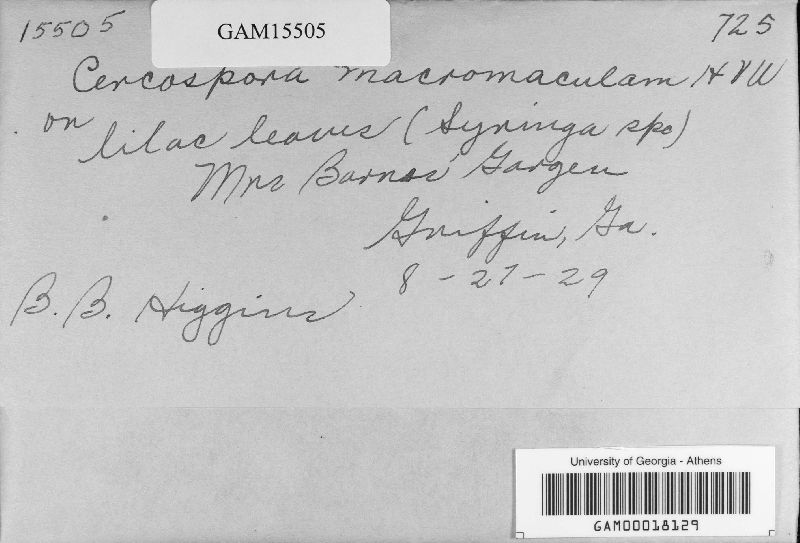 15505
GAM15505
725
Cercospora macromaculam H & W
on lilac leaves (Syringa spc)
Mrs Barnes' Gargen
Griffin, Ga.
8-27-29
B. B. Higgins
University of Georgia - Athens
GAM00018129